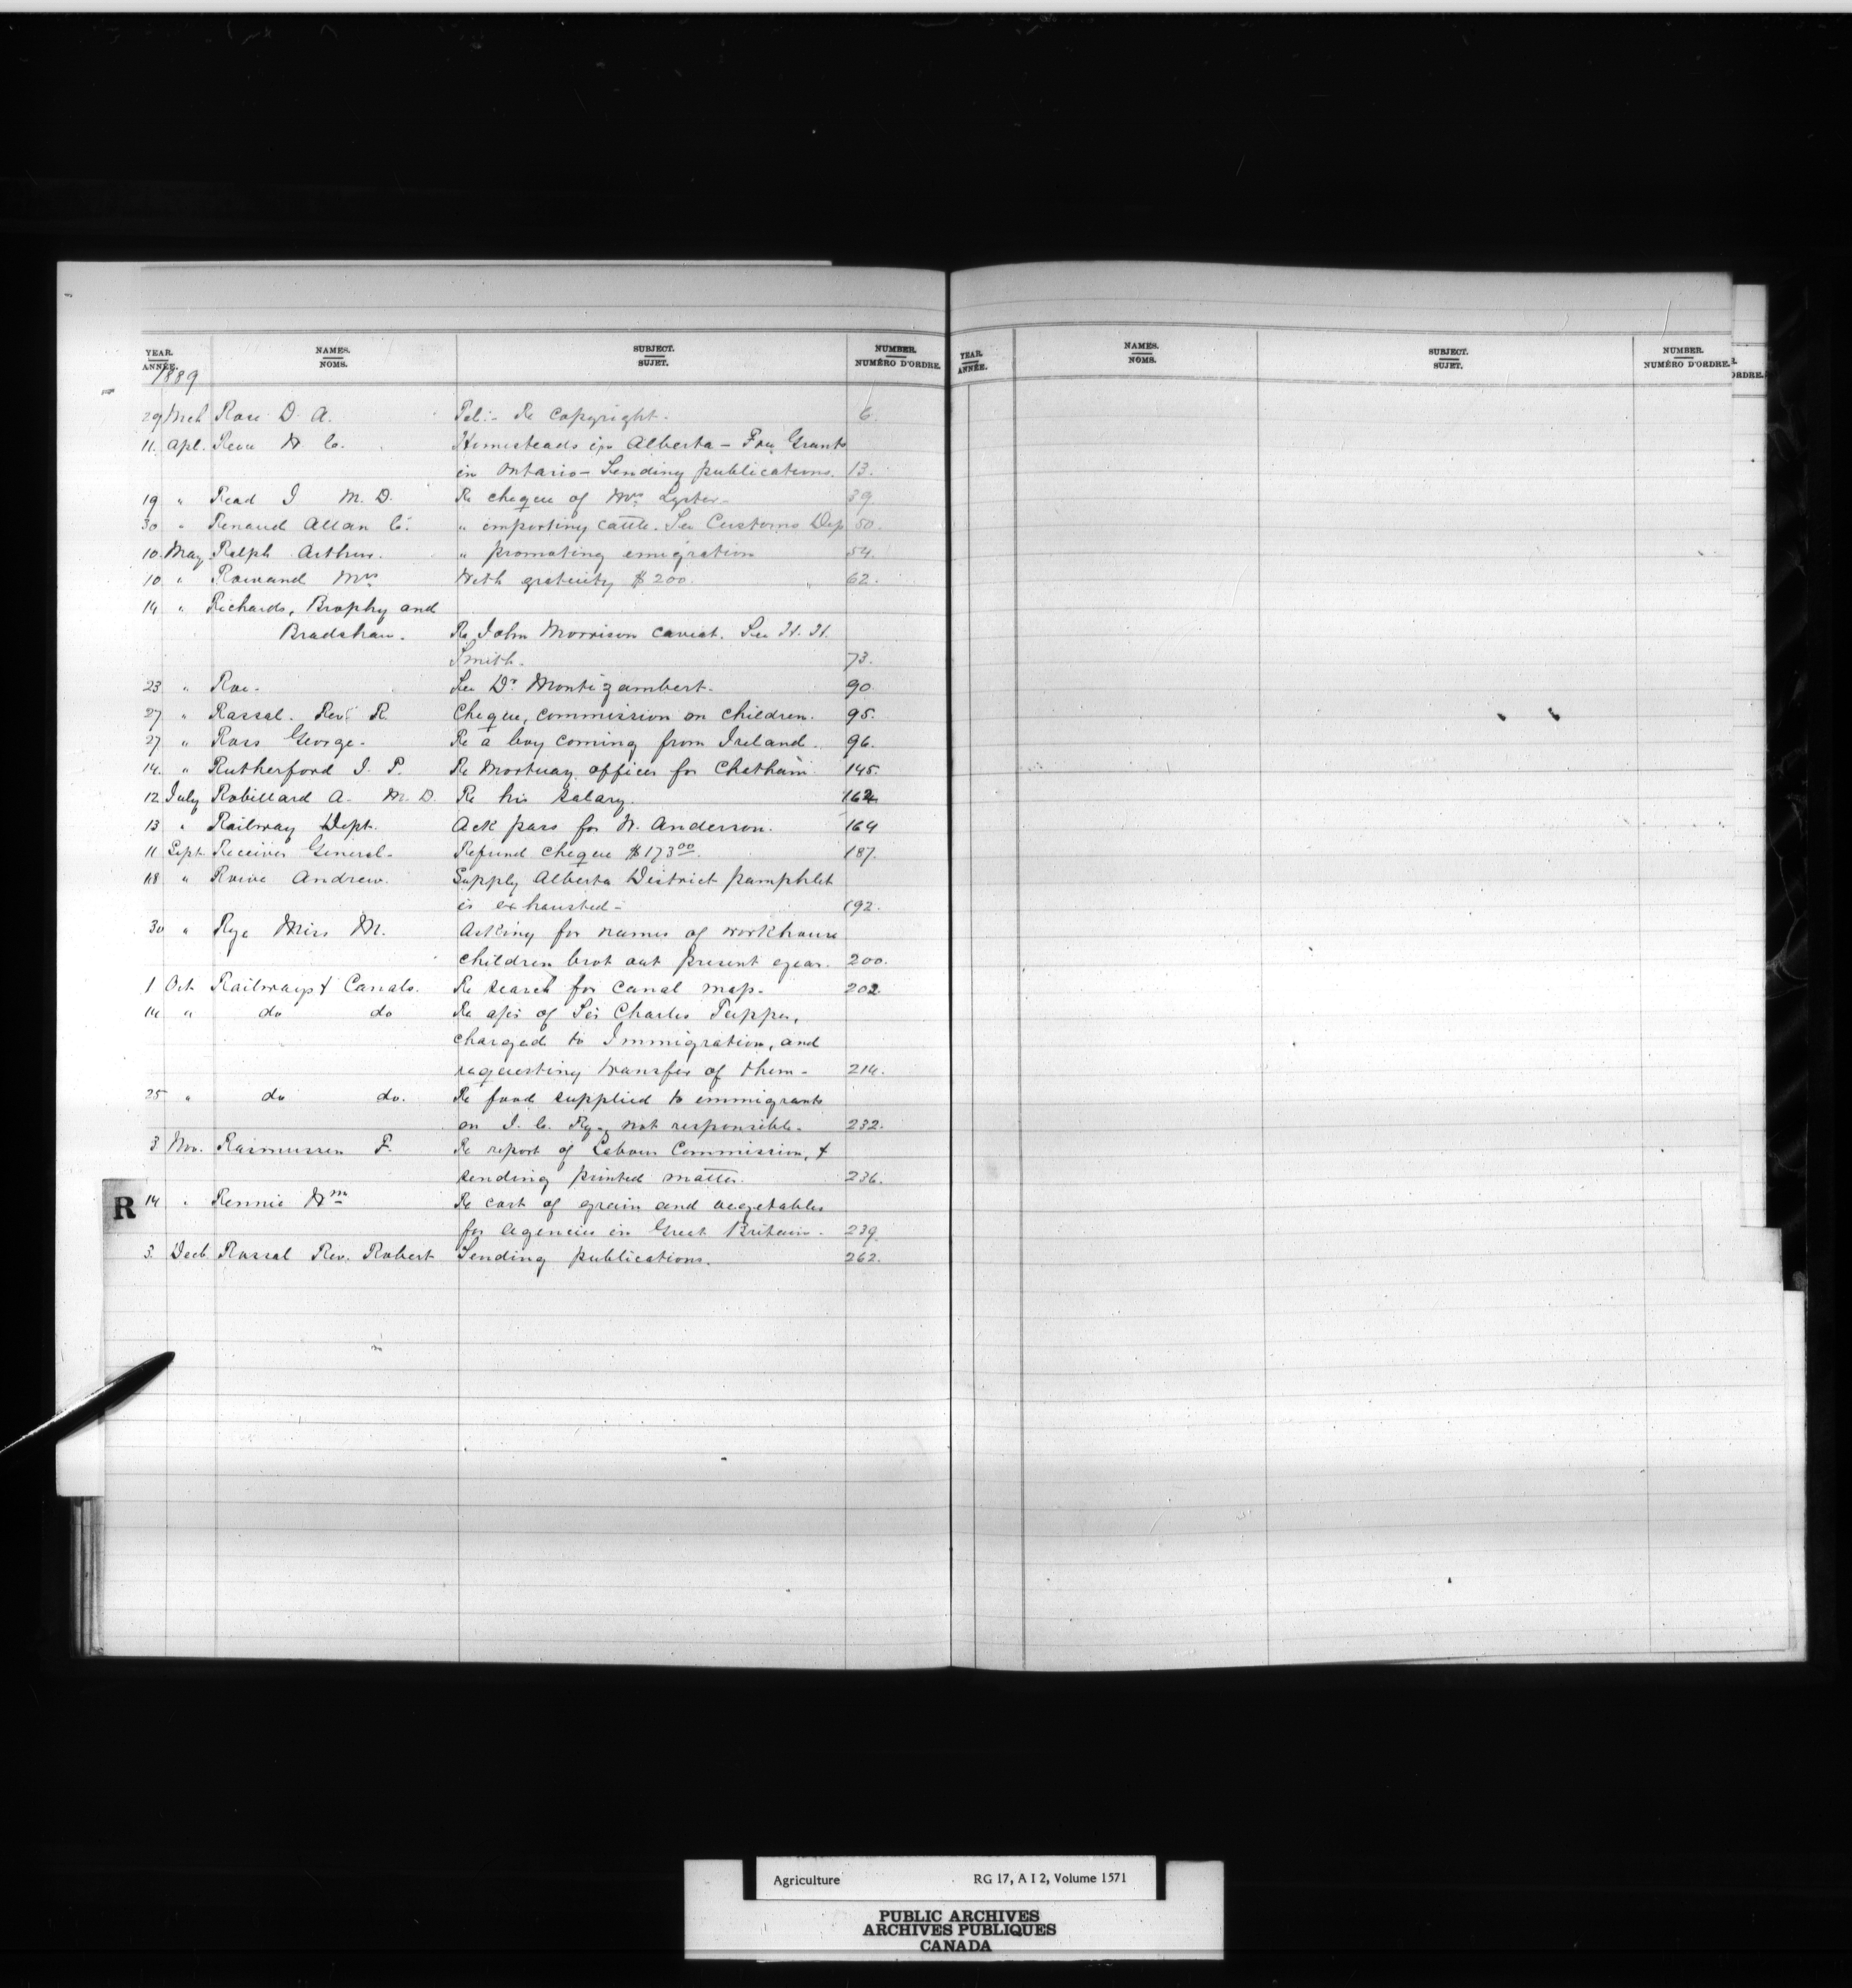 YEAR. NAMES. SUBJECT. NUMBER.
ANNÉE. NOMS. SUJET. NUMÉRO D'ORDRE.
1889
29 Mch Rose D. A. Tel:- Re Copyright. 6.
11. Apl. W. C. Homesteads in Alberta - Free Grants
in Ontario - Sending publications. 13.
19 " Read J M. D. Re cheque of Mrs Lyster - 39.
30 " Renaud Allan Co. " importing cattle. See Customs Dep 50.
10. May Ralph Arthur. " promoting emigration 54.
10 " Rowand Mrs With gratuity $200. 62.
14 " Richards, Brophy and
Bradshaw. Re John Morrison caveat. See H. H.
Smith. 73.
23 " Roe. See Dr Montizambert. 90.
27 " Rassal. Revd R Cheque, commission on children. 95.
27 " Ross George. Re a boy coming from Ireland. 96.
14. " Rutherford J. P. Re Mortuary officer for Chatham 145.
12. July Robillard A. M. D. Re his salary. 162
13 " Railway Dept. Ack pass for W. Anderson. 164
11 Sept. Receiver General. Refund cheque $173.00. 187.
18 " Andrew. Supply Alberta District pamphlet
is exhausted - 192.
30 " Rye Miss M. Asking for names of workhouse
children brot out present year. 200.
1 Oct. Railways & Canals. Re search for canal map. 202.
14 " do do Re a/cs of Sir Charles Tupper,
charged to Immigration, and
requesting transfer of them - 214.
25 " do do. Re food supplied to immigrants
on I. C. Ry - not responsible. 232.
3 Nov. Rasmussen F. Re report of Labour Commission, &
sending printed matter. 236.
R
14 " Rennie Wm Re cost of grain and vegetables
for agencies in Great Britain. 239.
3. Decb Rassal Rev. Robert Sending publications. 262.
YEAR. NAMES. SUBJECT. NUMBER.
ANNÉE. NOMS. SUJET. NUMÉRO D'ORDRE.
ORDRE.
Agriculture RG 17, A I 2, Volume 1571
PUBLIC ARCHIVES
ARCHIVES PUBLIQUES
CANADA